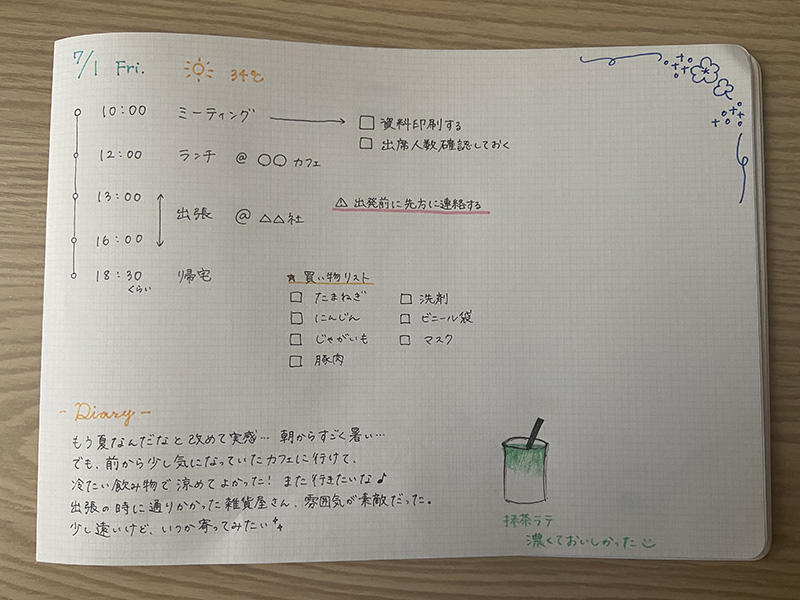 7/1 Fri. 34℃
10:00 ミーティング → □ 資料印刷する
□ 出席人数確認しておく
12:00 ランチ @ ○○ カフェ
13:00
出張 @ △△社 ⚠ 出発前に先方に連絡する
16:00
18:30 帰宅
くらい
★ 買い物リスト
□ たまねぎ □ 洗剤
□ にんじん □ ビニール袋
□ じゃがいも □ マスク
□ 豚肉
- Diary -
もう夏なんだなと改めて実感… 朝からすごく暑い…
でも、前から少し気になっていたカフェに行けて、
冷たい飲み物で涼めてよかった! また行きたいな♪
出張の時に通りかかった雑貨屋さん、雰囲気が素敵だった。
少し遠いけど、いつか寄ってみたい
抹茶ラテ
濃くておいしかった